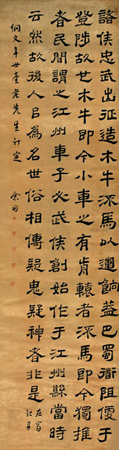 諸侯忠武出征造木牛流馬以運餉蓋巴蜀道阻便于
登陟故木牛即今小車之有前轅者流馬即今獨推
者民間謂之江州車子必武侯創始作于江州縣當時
云然故後人以為名世俗相傳疑鬼疑神者非是
侗文年世臺老先生訂定